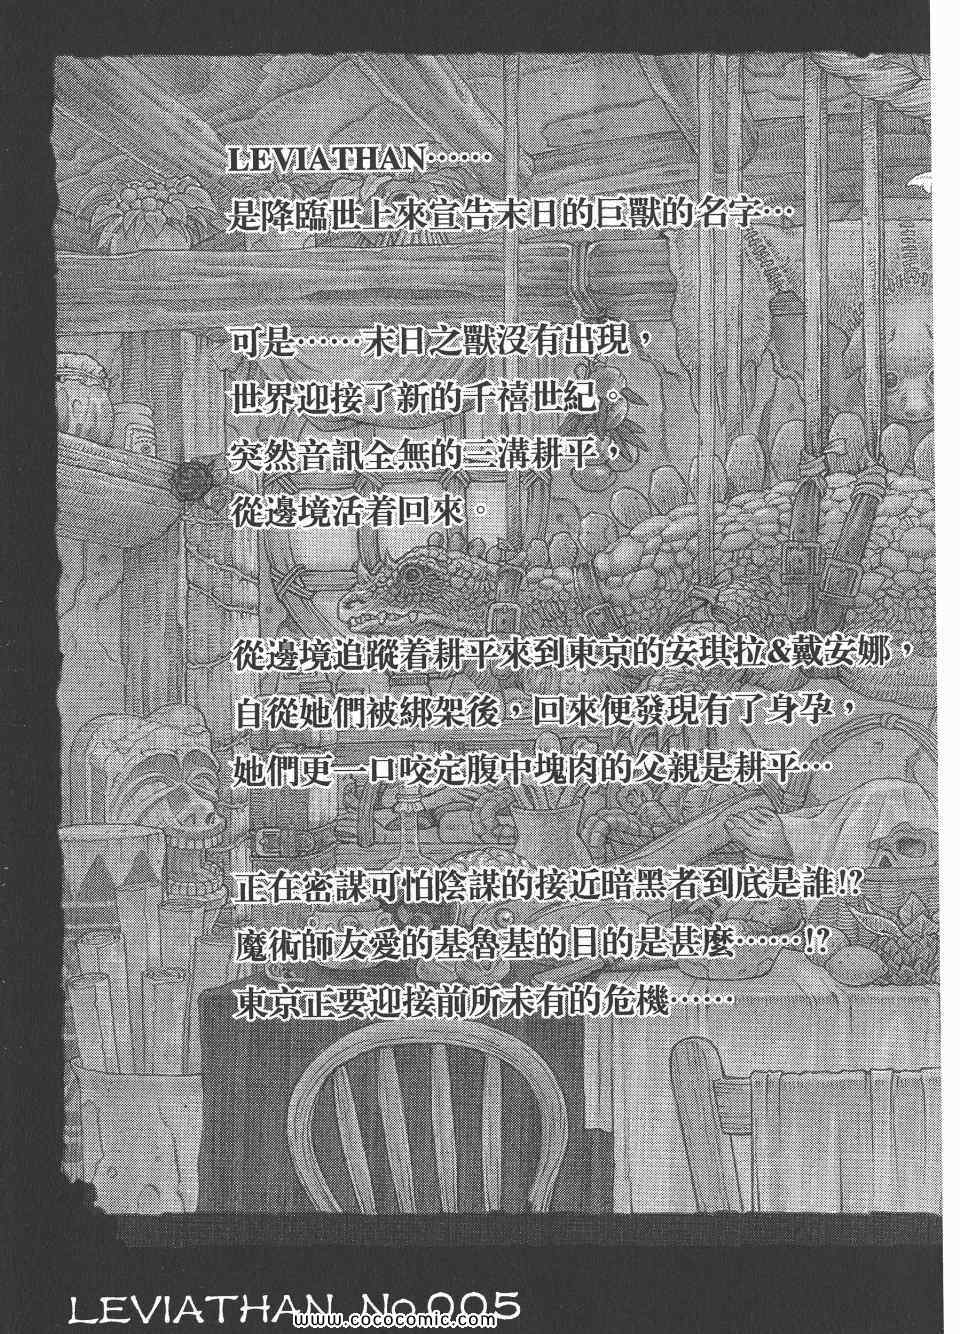 LEVIATHAN……
是降臨世上來宣告末日的巨獸的名字…
可是……末日之獸沒有出現，
世界迎接了新的千禧世紀。
突然音訊全無的三溝耕平，
從邊境活着回來。
從邊境追蹤着耕平來到東京的安琪拉&戴安娜，
自從她們被綁架後，回來便發現有了身孕，
她們更一口咬定腹中塊肉的父親是耕平…
正在密謀可怕陰謀的接近暗黑者到底是誰!?
魔術師友愛的基魯基的目的是甚麼……!?
東京正要迎接前所未有的危機……
LEVIATHAN No.005
www.cococomic.com